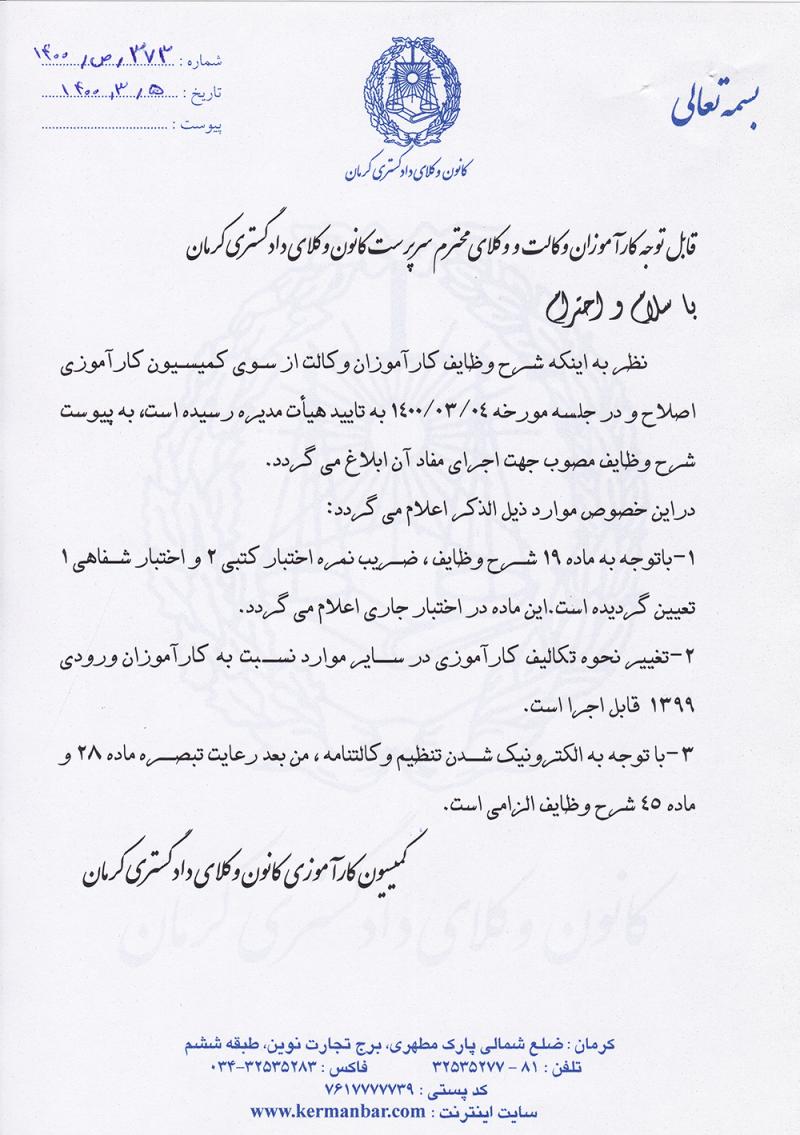 بسمه تعالی
کانون وکلای دادگستری کرمان
شماره : ۳۷۳/ص/۱۴۰۰
تاریخ : ۱۴۰۰/۳/۵
پیوست :
قابل توجه کارآموزان وکالت و وکلای محترم سرپرست کانون وکلای دادگستری کرمان
با سلام و احترام
نظر به اینکه شرح وظایف کارآموزان وکالت از سوی کمیسیون کارآموزی
اصلاح و در جلسه مورخه ۱۴۰۰/۰۳/۰۴ به تایید هیأت مدیره رسیده است، به پیوست
شرح وظایف مصوب جهت اجرای مفاد آن ابلاغ می گردد.
دراین خصوص موارد ذیل الذکر اعلام می گردد:
۱-باتوجه به ماده ۱۹ شرح وظایف ، ضریب نمره اختبار کتبی ۲ و اختبار شفاهی ۱
تعیین گردیده است.این ماده در اختبار جاری اعلام می گردد.
۲-تغییر نحوه تکالیف کارآموزی در سایر موارد نسبت به کارآموزان ورودی
۱۳۹۹ قابل اجرا است.
۳-با توجه به الکترونیک شدن تنظیم وکالتنامه ، من بعد رعایت تبصره ماده ۲۸ و
ماده ۴۵ شرح وظایف الزامی است.
کمیسیون کارآموزی کانون وکلای دادگستری کرمان
کانون وکلای دادگستری کرمان
کرمان : ضلع شمالی پارک مطهری، برج تجارت نوین، طبقه ششم
تلفن : ۸۱ - ۳۲۵۳۵۲۷۷ فاکس : ۳۲۵۳۵۲۸۳-۰۳۴
کد پستی : ۷۶۱۷۷۷۷۷۳۹
سایت اینترنت : www.kermanbar.com